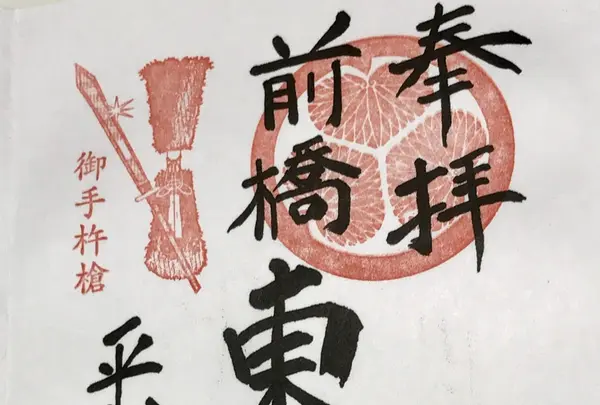 奉拝
前橋東
御手杵槍
平